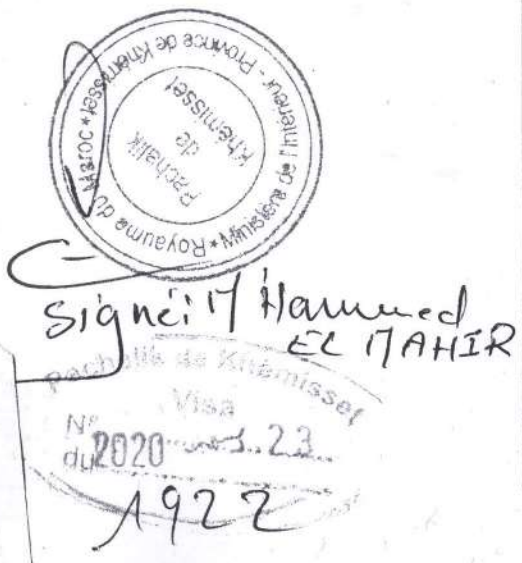 Royaume du Maroc * Ministère de l'Intérieur - Province de Khémisset *
Pachalik
de
Khémisset
Signé: M'Hammed
EL MAHIR
Pachalik de Khémisset
Visa
N°
du 2020 23
1922